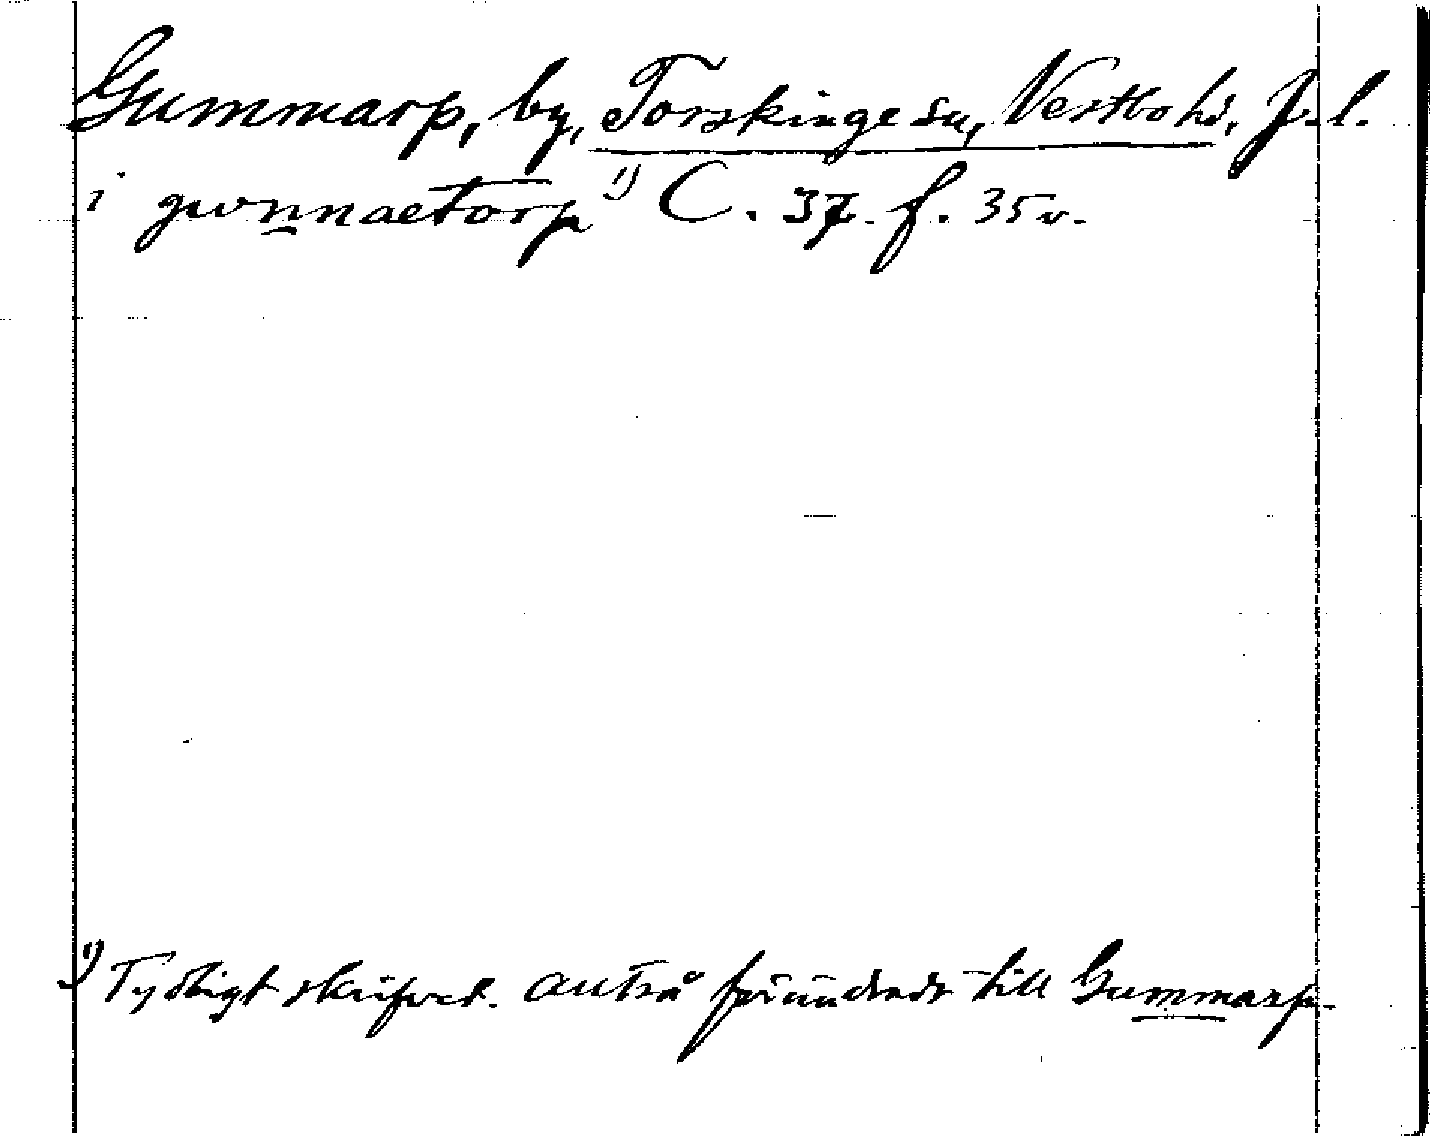 Gummarp, by, Torskinge sn, Vestbo hd, J. l.
i gwnnaetorp 1) C. 37. f. 35 v.
1) Tydligt skrifvet. till Gummarp.